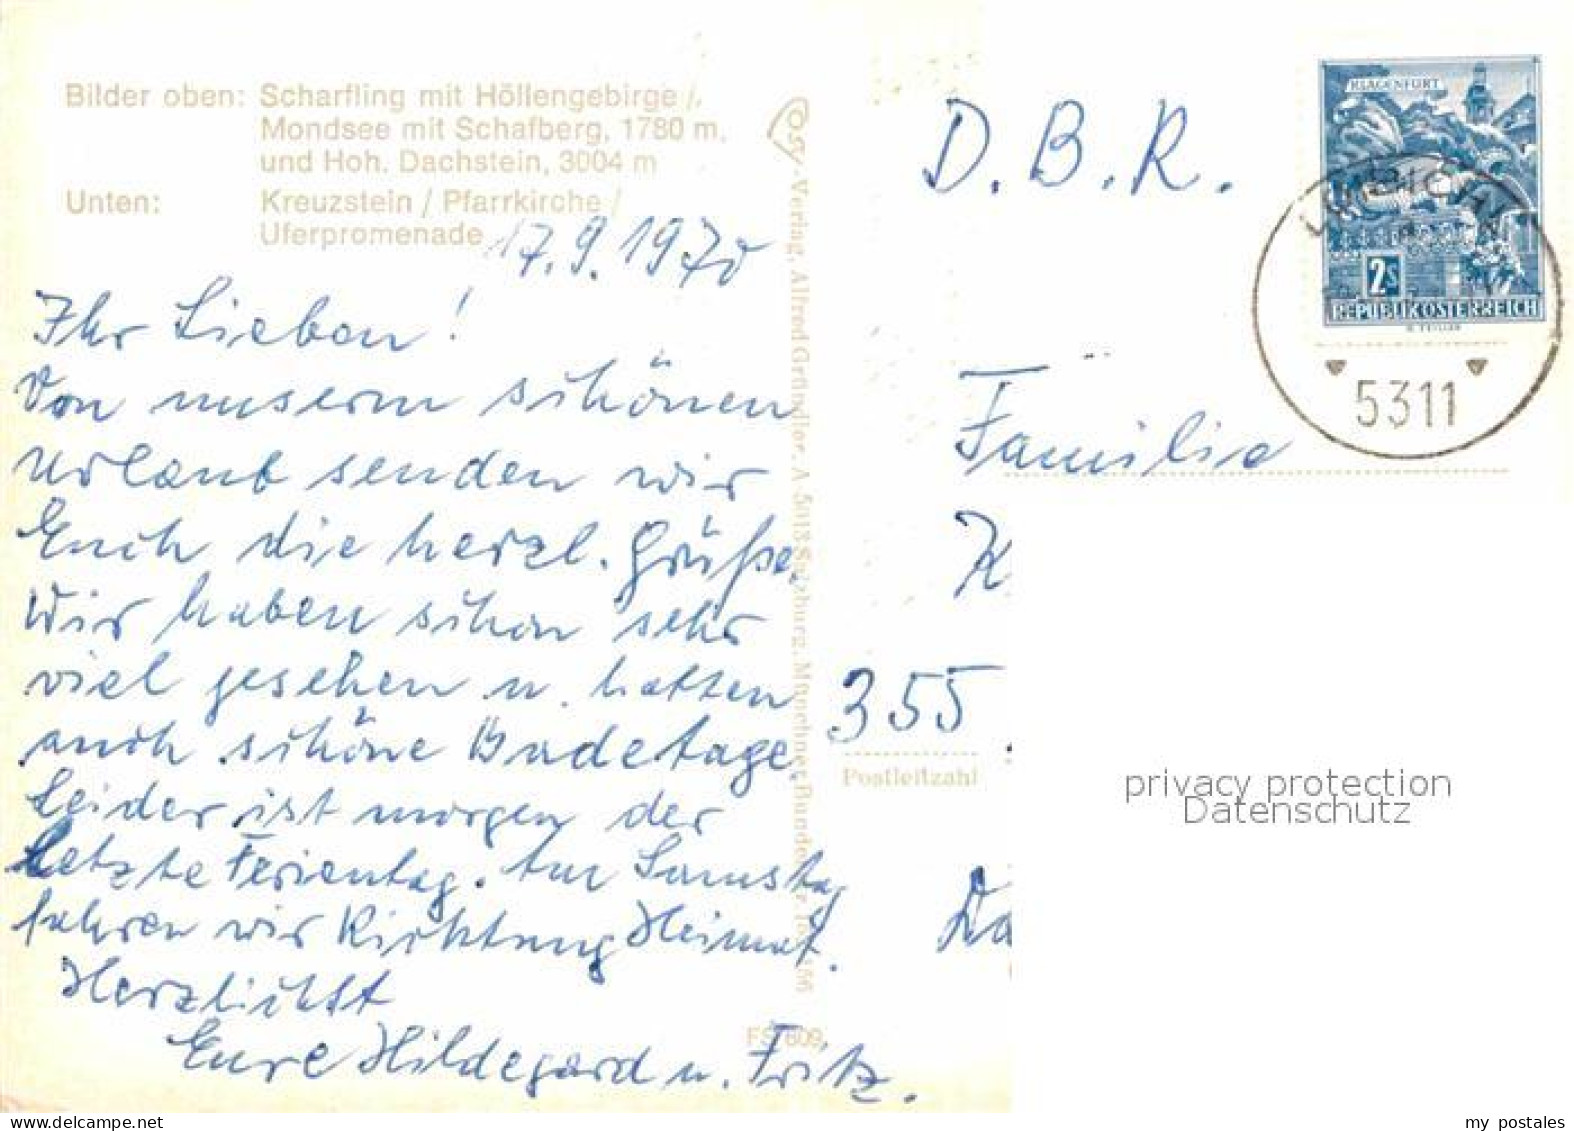 Bilder oben: Scharfling mit Höllengebirge /
Mondsee mit Schafberg, 1780 m,
und Hoh. Dachstein, 3004 m
Unten: Kreuzstein / Pfarrkirche /
Uferpromenade
17.9.1970
Ihr Lieben!
Von unserm schönen
Urlaub senden wir
Euch die herzl. Grüße.
Wir haben schon sehr
viel gesehen u. hatten
auch schöne Badetage.
Leider ist morgen der
letzte Ferientag. Am Samstag
fahren wir Richtung Heimat.
Herzlichst
Eure Hildegard u. Fritz.
FS 809
-Verlag, Alfred Gründler, A-5013 Salzburg, Münchner Bundesstr.
D.B.R.
Familie
K
355
Postleitzahl
Da
KLAGENFURT
2S
REPUBLIK OSTERREICH
5311
privacy protection
Datenschutz
my postales